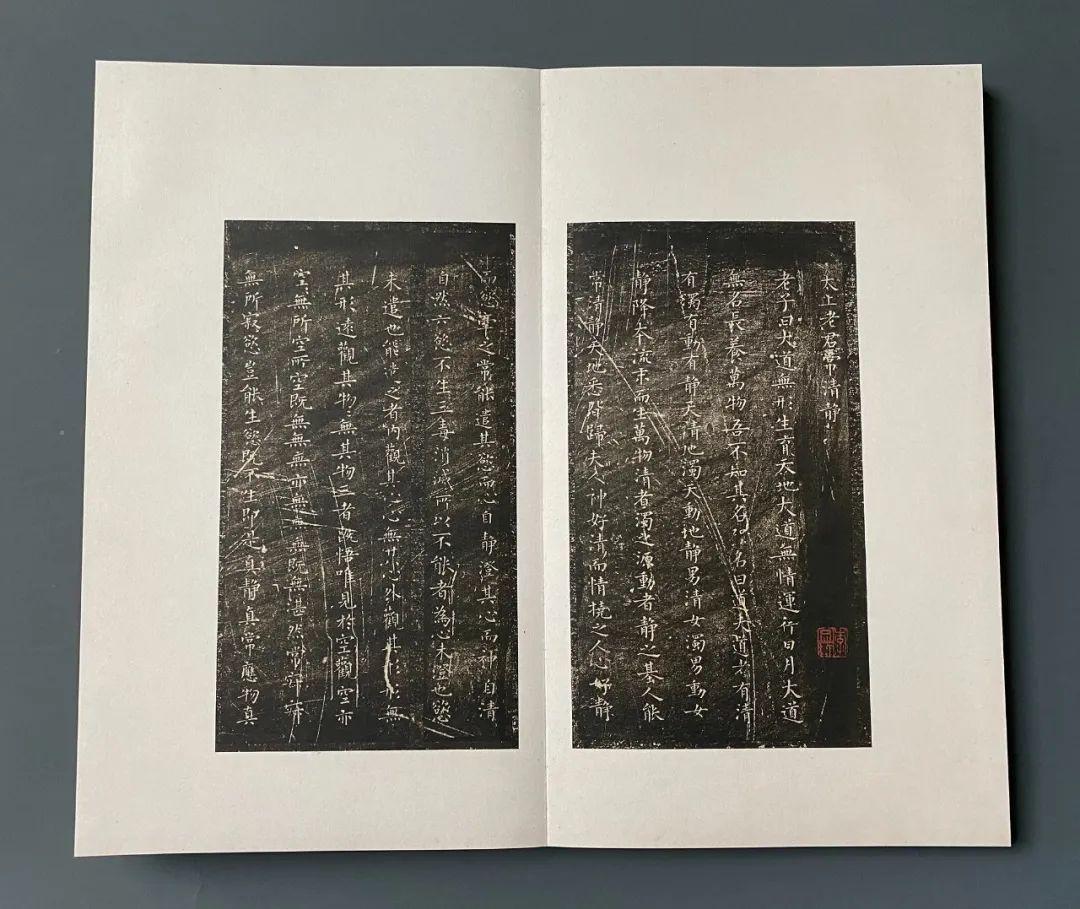 太上老君常清静
老子曰大道無形生育天地大道無情運行日月大道
無名長養萬物吾不知其名強名曰道夫道者有清
有濁有動有静天清地濁天動地静男清女濁男動女
静降本流末而生萬物清者濁之源動者静之基人能
常清静天地悉皆歸夫人神好清而情撓之人心好静
而慾牽之常能遣其慾而心自静澄其心而神自清
自然六慾不生三毒消滅所以不能者為心未澄也慾
未遣也能遣之者内觀其心心無其心外觀其形形無
其形遠觀其物物無其物三者既悟唯見於空觀空亦
空空無所空所空既無無無亦無無無既無湛然常寂寂
無所寂慾豈能生慾既不生即是真静真常應物真